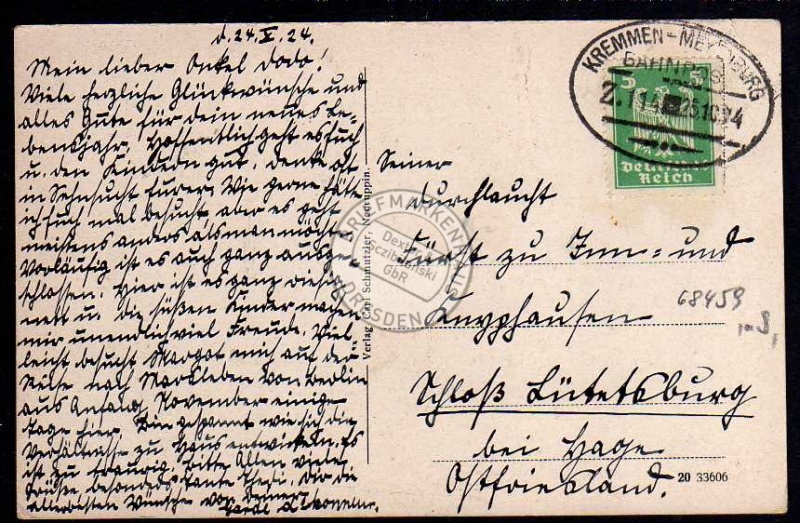 d. 24. X. 24.
Mein lieber Onkel Dodo!
Viele herzliche Glückwünsche und
alles Gute für dein neues Le-
bensjahr. Hoffentlich geht es Euch
u. den Kindern gut, denke oft
in Sehnsucht Eurer. Wie gerne hätte
ich Euch mal besucht, aber es geht
meistens anders als man möchte.
Vorläufig ist es auch ganz ausge-
schlossen. Hier ist es ganz
nett u. die süßen Kinder machen
mir unendlich viel Freude. Viel-
leicht besucht Margot mich auf der
Reise nach von Berlin
aus Anfang November einige
Tage hier. Bin gespannt wie sich die
Verhältnisse zu Haus entwickeln. Es
ist zu traurig. Bitte Allen viele
Grüße, besonders Tante Theda. Dir die
allerbesten Wünsche von Deiner
Verlag Carl Schmutzler, Neuruppin.
KREMMEN-MEYENBURG
BAHNPOST
5 5
Deutsches
Reich
Seiner
Durchlaucht
Fürst zu Inn- und
Knyphausen
Schloß Lütetsburg
bei Hage
Ostfriesland.
68459
20 33606
BRIEFMARKENHAUS
GbR
DRESDEN